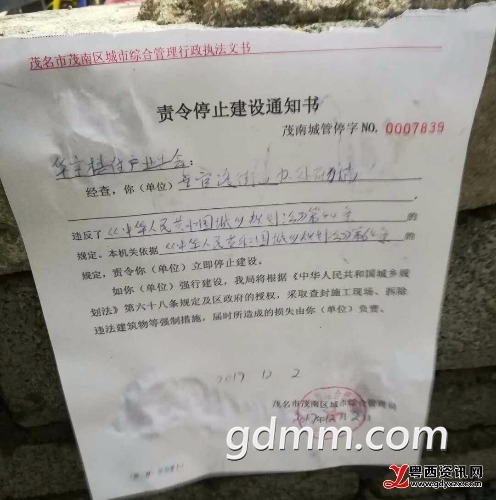 茂名市茂南区城市综合管理行政执法文书
责令停止建设通知书
茂南城管停字 NO. 0007839
经查，你（单位）
违反了《中华人民共和国城乡规划法》第64条 的
规定。本机关依据《中华人民共和国城乡规划法》第64条 的
规定，责令你（单位）立即停止建设。
如你（单位）强行建设，我局将根据《中华人民共和国城乡规
划法》第六十八条规定及区政府的授权，采取查封施工现场、拆除
违法建筑物等强制措施，届时所造成的损失由你（单位）负责。
2019 12 2
茂名市茂南区城市综合管理局
2019年12月2日
gdmm.com
粤西资讯网
www.gdyxzx.com